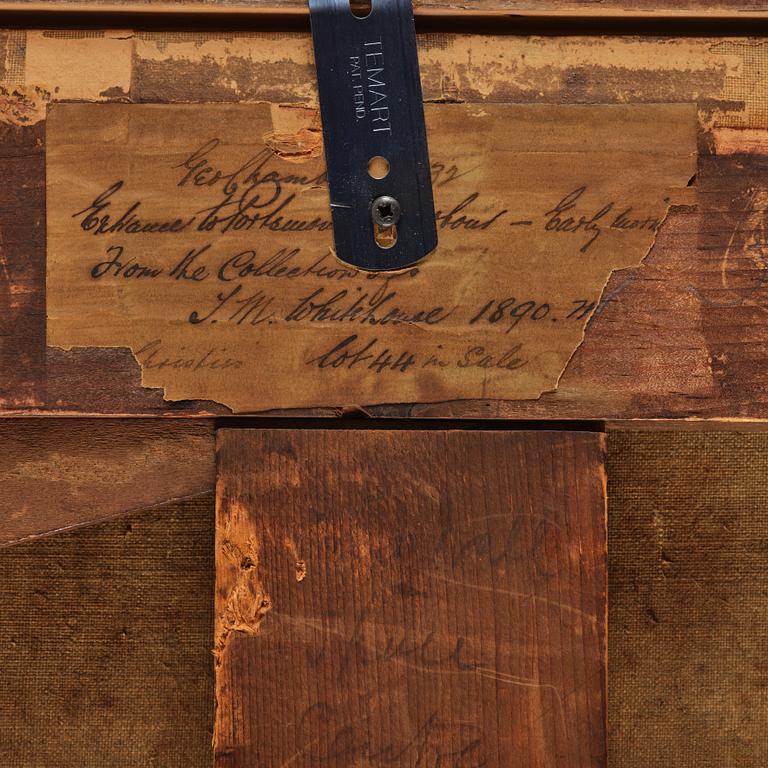 TEMART
PAT. PEND.
Geo Cham 32
Entrance to Portsmou bour – Early morn
From the Collection of
T. M. Whitehouse 1890.
Christies lot 44 in Sale
Hull